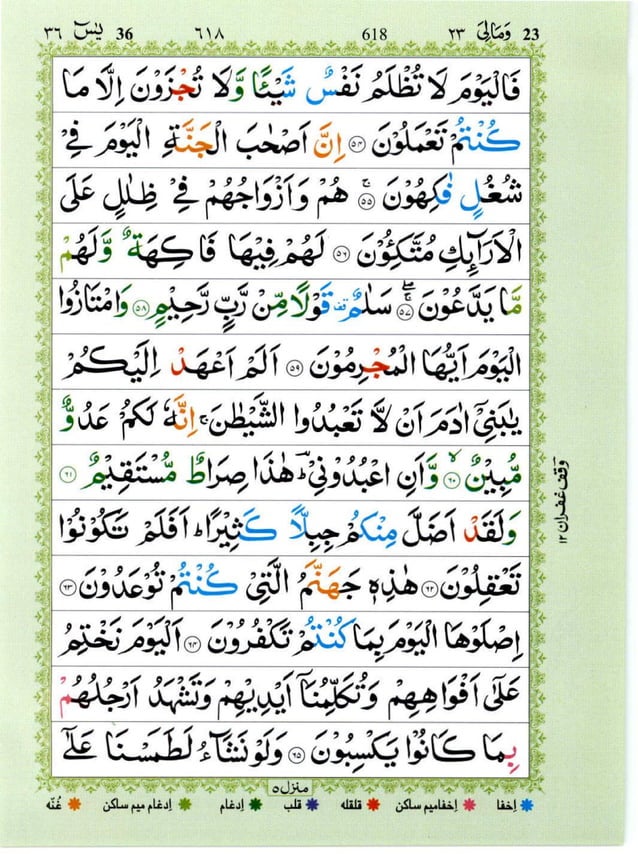 23 وَمَالِیَ ٢٣ 618 ٦١٨ 36 یٰسٓ ٣٦
فَالْیَوْمَ لَا تُظْلَمُ نَفْسٌ شَیْئًا وَّلَا تُجْزَوْنَ اِلَّا مَا
كُنْتُمْ تَعْمَلُوْنَ ﴿٥٤﴾ اِنَّ اَصْحٰبَ الْجَنَّةِ الْیَوْمَ فِیْ
شُغُلٍ فٰكِهُوْنَ ۚ ﴿٥٥﴾ هُمْ وَاَزْوَاجُهُمْ فِیْ ظِلٰلٍ عَلَی
الْاَرَآىِٕكِ مُتَّكِـُٔوْنَ ﴿٥٦﴾ لَهُمْ فِیْهَا فَاكِهَةٌ وَّلَهُمْ
مَّا یَدَّعُوْنَ ۚۖ ﴿٥٧﴾ سَلٰمٌ قف قَوْلًا مِّنْ رَّبٍّ رَّحِیْمٍ ﴿٥٨﴾ وَامْتَازُوا
الْیَوْمَ اَیُّهَا الْمُجْرِمُوْنَ ﴿٥٩﴾ اَلَمْ اَعْهَدْ اِلَیْكُمْ
یٰبَنِیْۤ اٰدَمَ اَنْ لَّا تَعْبُدُوا الشَّیْطٰنَ ۚ اِنَّهٗ لَكُمْ عَدُوٌّ
مُّبِیْنٌ ۙ ﴿٦٠﴾ وَّاَنِ اعْبُدُوْنِیْ ؔؕ هٰذَا صِرَاطٌ مُّسْتَقِیْمٌ ﴿٦١﴾
وَلَقَدْ اَضَلَّ مِنْكُمْ جِبِلًّا كَثِیْرًا ؕ اَفَلَمْ تَكُوْنُوْا
تَعْقِلُوْنَ ﴿٦٢﴾ هٰذِهٖ جَهَنَّمُ الَّتِیْ كُنْتُمْ تُوْعَدُوْنَ ﴿٦٣﴾
اِصْلَوْهَا الْیَوْمَ بِمَا كُنْتُمْ تَكْفُرُوْنَ ﴿٦٤﴾ اَلْیَوْمَ نَخْتِمُ
عَلٰۤی اَفْوَاهِهِمْ وَتُكَلِّمُنَاۤ اَیْدِیْهِمْ وَتَشْهَدُ اَرْجُلُهُمْ
بِمَا كَانُوْا یَكْسِبُوْنَ ﴿٦٥﴾ وَلَوْ نَشَآءُ لَطَمَسْنَا عَلٰۤی
وقف غفران ١٢
منزل ٥
إخفا إخفامیم ساکن قلقله قلب إدغام إدغام میم ساکن غُنّه